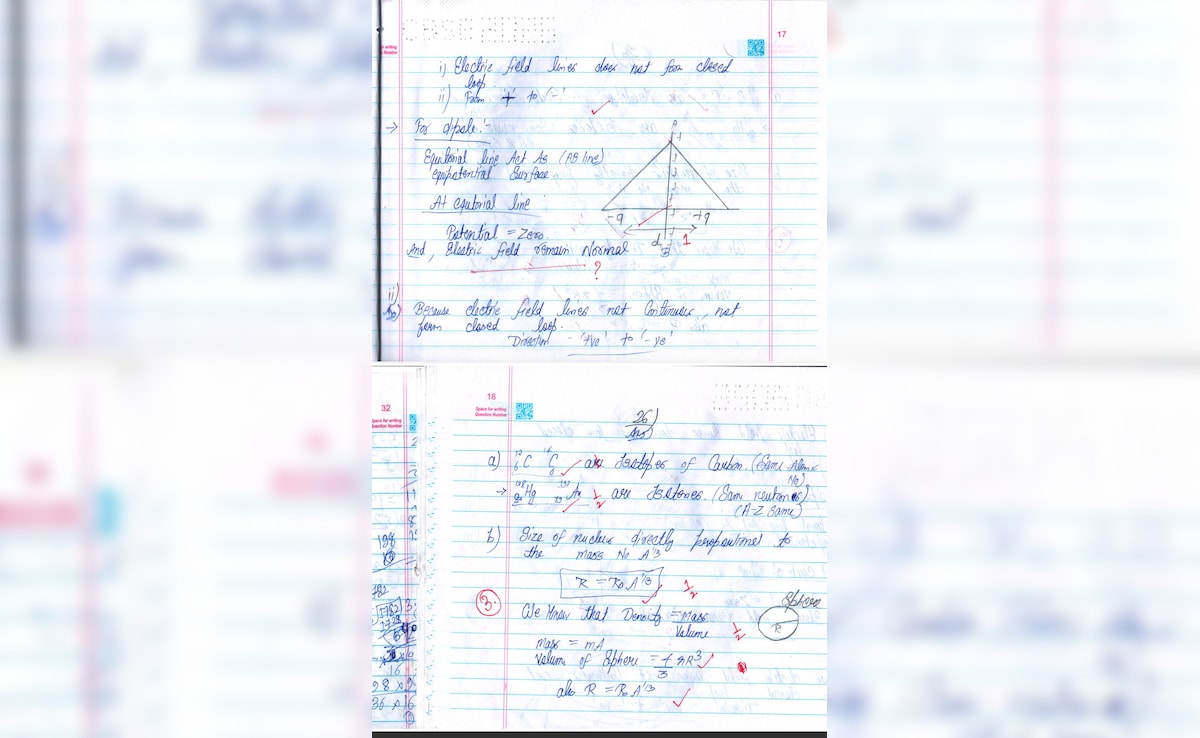 17
i) Electric field lines does not form closed
loop.
ii) From '+' to '-'
→ For dipole:-
Equitorial line Act As (AB line)
equipotential Surface
At equitorial line
Potential = Zero
And, Electric field remain Normal
?
A
-q
+q
d
B
1
ii)
Ans) Because electric field lines not Continuous, not
form closed loop.
Direction - '+ve' to '-ve'
32
Space for writing
Question Number
18
Space for writing
Question Number
26)
Ans)
a) ¹²₆C ¹⁴₆C are Isotopes of Carbon. (Same Atomic
No)
→ ¹⁹⁸₈₀Hg ¹⁹⁷₇₉Au ½ are Isotones. (Sam neutrons)
(A-Z same)
b) Size of nucleus directly
the mass No A^1/3
R = R₀A^1/3
½
3.
We Know that Density = Mass
Volume
½
Sphere
R
Mass = mA
Volume of Sphere = 4/3 πR³
also R = R₀A^1/3
198
782
16